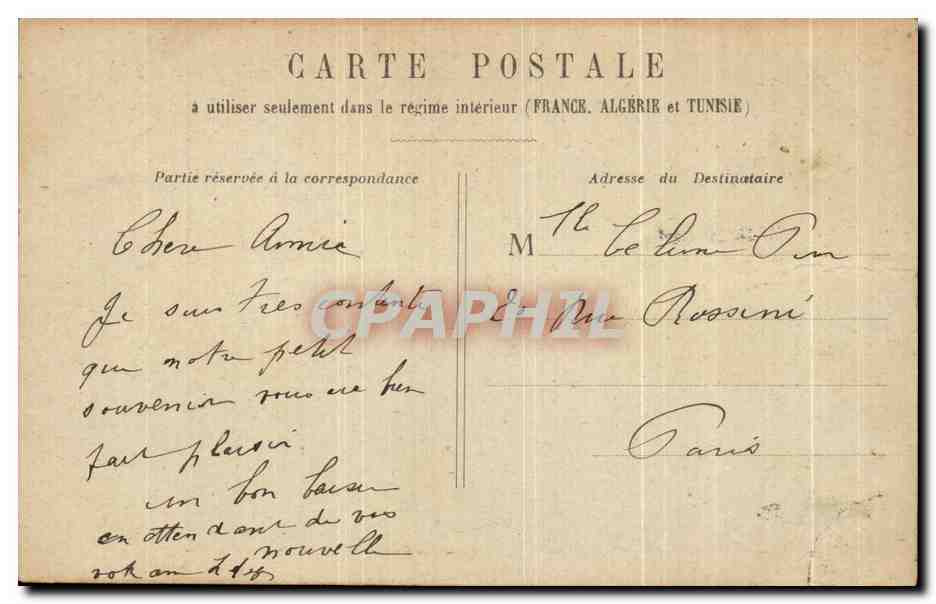 CARTE POSTALE
à utiliser seulement dans le régime intérieur (FRANCE, ALGÉRIE et TUNISIE)
Partie réservée à la correspondance
Adresse du Destinataire
Chere Amie
Je suis tres contente
que notre petit
souvenir vous ai bien
fait plaisir
un bon baiser
en attendant de vos
nouvelle
votre amie
Mlle
20 Rue Rossini
Paris
CPAPHIL